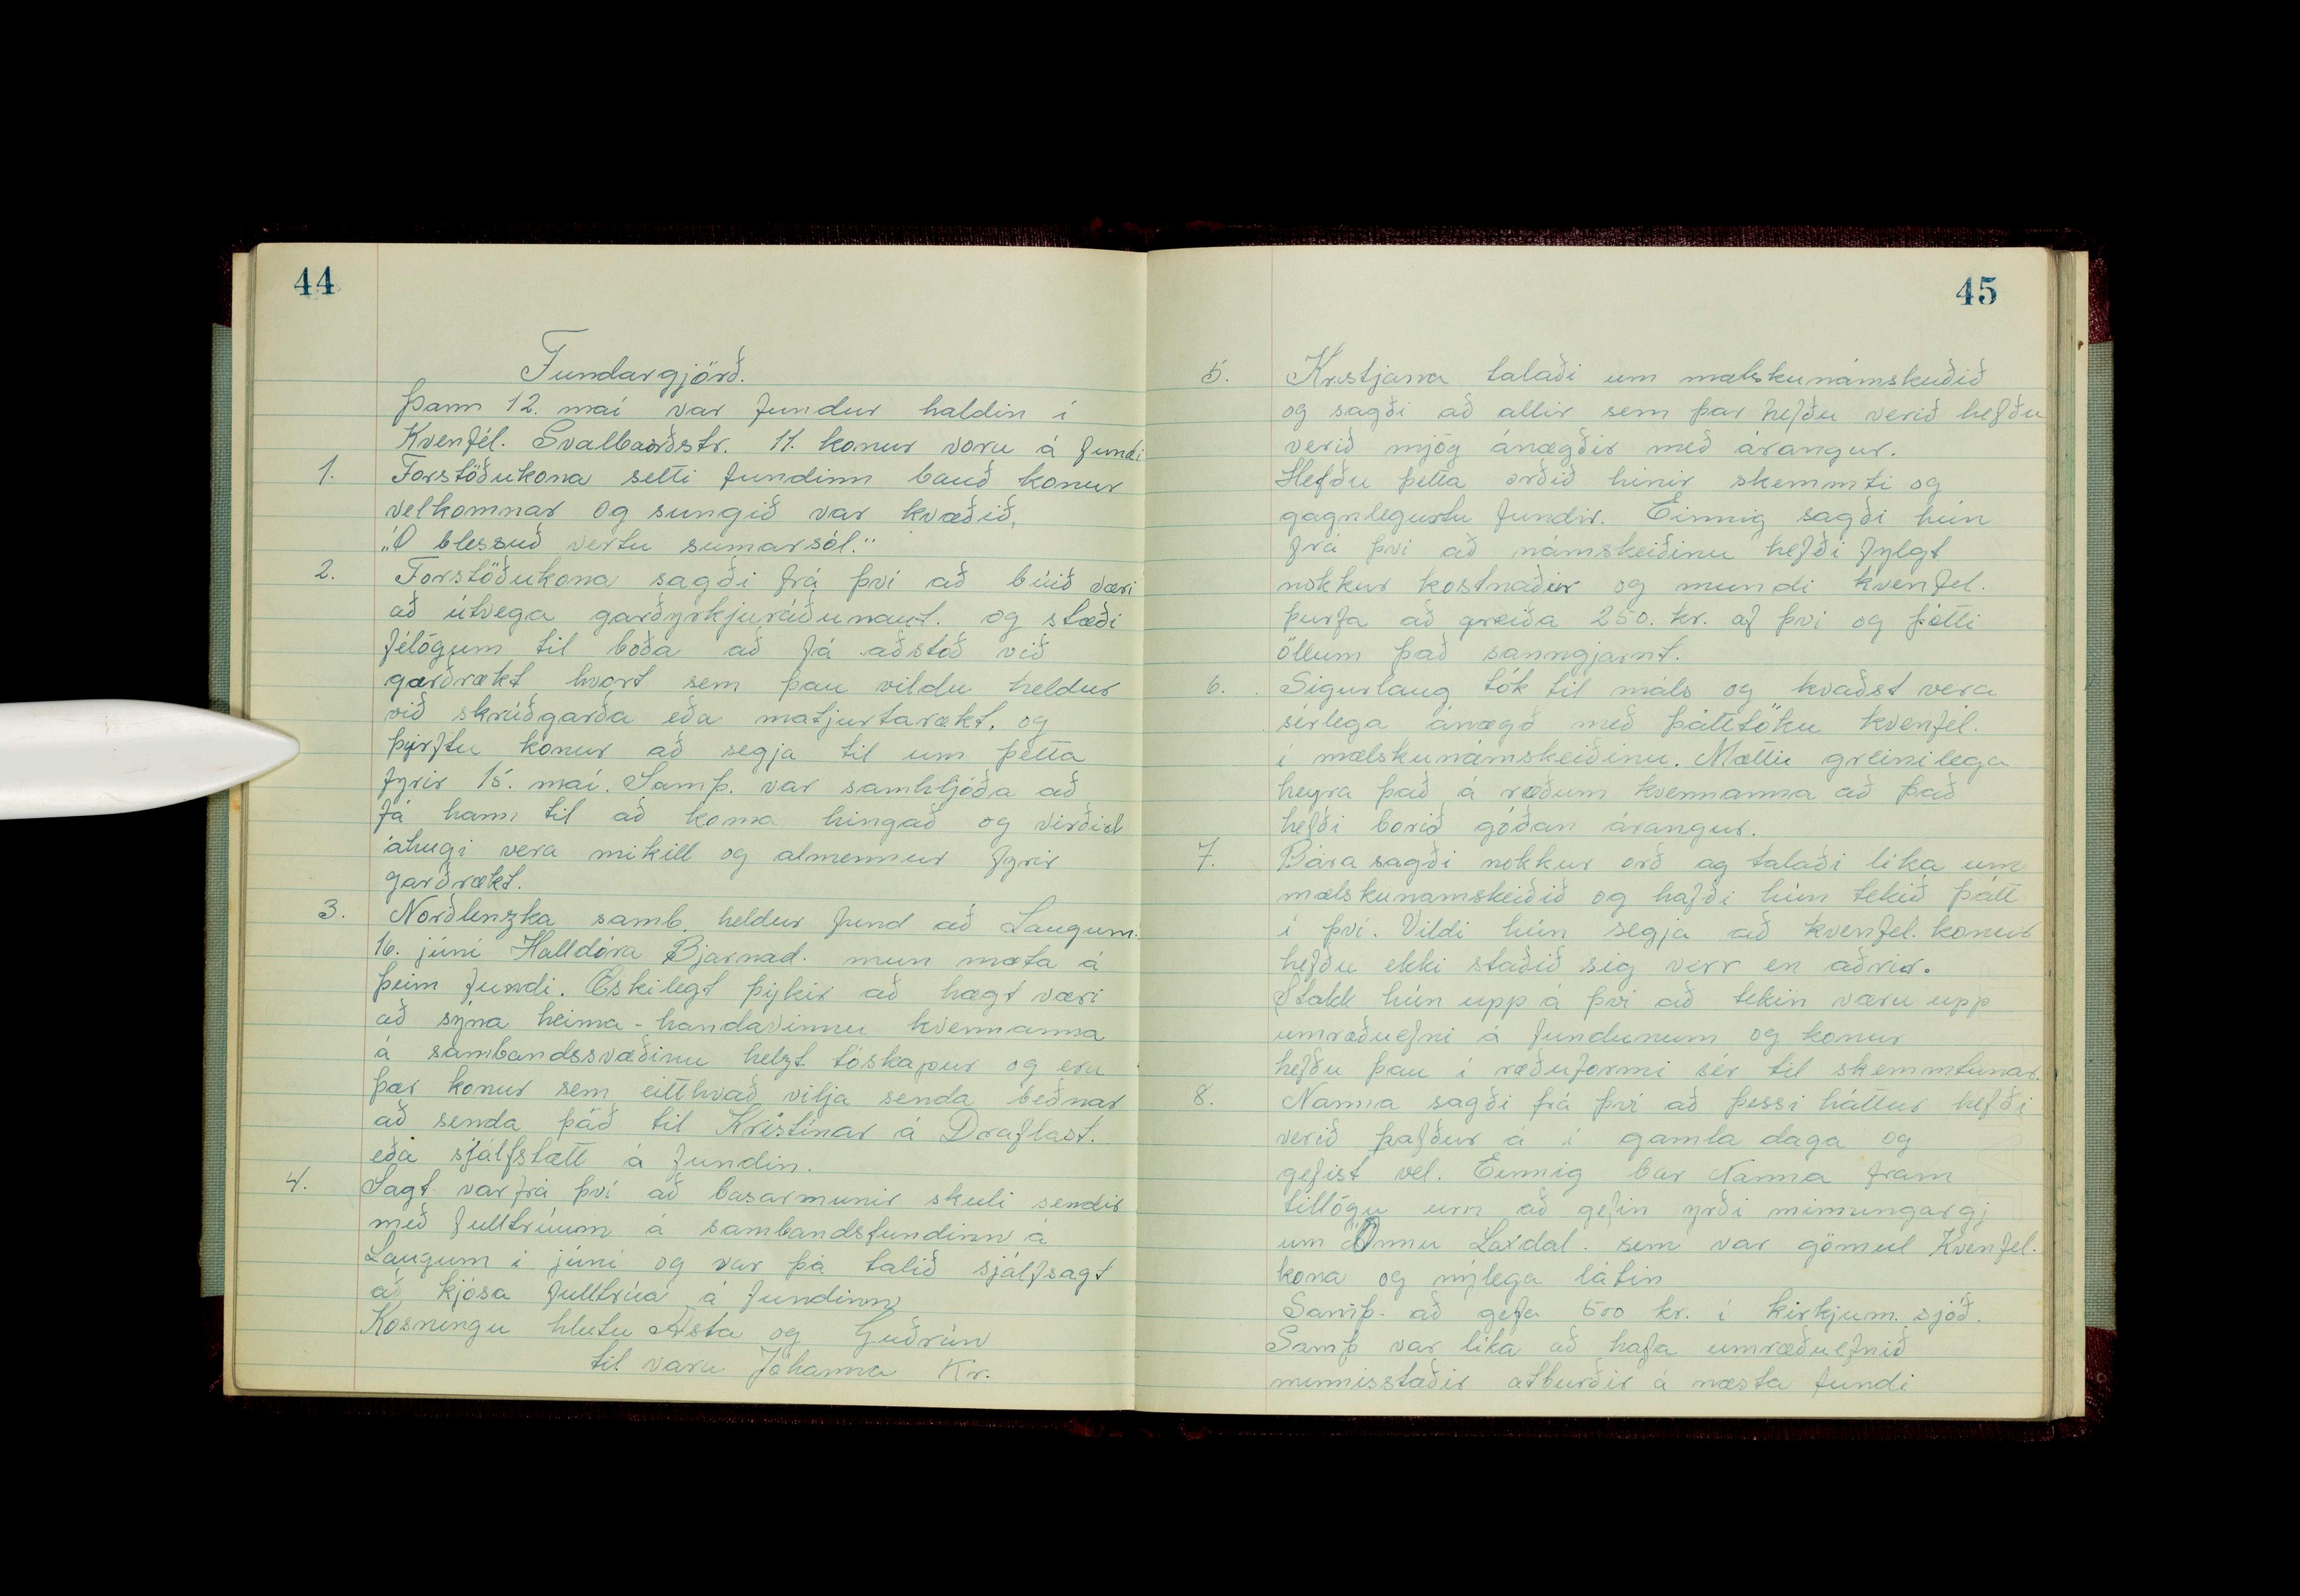 44
Fundargjörð.
Þann 12. maí var fundur haldin í
Kvenfél. Svalbarðstr. 11. konur voru á fundi
1. Forstöðukona setti fundinn bauð konur
velkomnar og sungið var kvæðið,
„Ó blessuð vertu sumarsól.“
2. Forstöðukona sagði frá því að búið væri
að útvega garðyrkjuráðunaut. og stæði
félögum til boða að fá aðstoð við
garðrækt hvort sem þau vildu heldur
við skrúðgarða eða matjurtarækt. og
þyrftu konur að segja til um þetta
fyrir 15. maí. Samþ. var samhljóða að
fá hann til að koma hingað og virðist
áhugi vera mikill og almennur fyrir
garðrækt.
3. Norðlenzka samb. heldur fund að Laugum.
16. júní Halldóra Bjarnad. mun mæta á
þeim fundi. Æskilegt þykir að hægt væri
að sýna heima-handavinnu kvennanna
á sambandssvæðinu helzt tóskapur og eru
þær konur sem eitthvað vilja senda beðnar
að senda það til Kristínar á Draflast.
eða sjálfstætt á fundin.
4. Sagt var frá því að basarmunir skuli sendir
með fulltrúum á sambandsfundinn á
Laugum í júní og var þá talið sjálfsagt
að kjósa fulltrúa á fundinn
Kosningu hlutu Ásta og Guðrún
til vara Jóhanna Kr.
45
5. Kristjana talaði um mælskunámskeiðið
og sagði að allir sem þar hefðu verið hefðu
verið mjög ánægðir með árangur.
Hefðu þetta orðið hinir skemmti og
gagnlegustu fundir. Einnig sagði hún
frá því að námskeiðinu hefði fylgt
nokkur kostnaður og mundi kvenfel.
þurfa að greiða 250. kr. af því og þótti
öllum það sanngjarnt.
6. Sigurlaug tók til máls og kvaðst vera
sérlega ánægð með þátttöku kvenfél.
í mælskunámskeiðinu. Mætti greinilega
heyra það á ræðum kvennanna að það
hefði borið góðan árangur.
7. Bára sagði nokkur orð og talaði líka um
mælskunamskeiðið og hafði hún tekið þátt
í því. Vildi hún segja að kvenfel. konur
hefðu ekki staðið sig verr en aðrir.
Stakk hún upp á því að tekin væru upp
umræðuefni á fundunum og konur
hefðu þau í ræðuformi sér til skemmtunar.
8. Nanna sagði frá því að þessi háttur hefði
verið hafður á í gamla daga og
gefist vel. Einnig bar Nanna fram
tillögu um að gefin yrði minningargj
um Önnu Laxdal. sem var gömul Kvenfel.
kona og nýlega látin
Samþ. að gefa 500 kr. í kirkjum. sjóð.
Samþ var líka að hafa umræðuefnið
minnisstæðir atburðir á næsta fundi